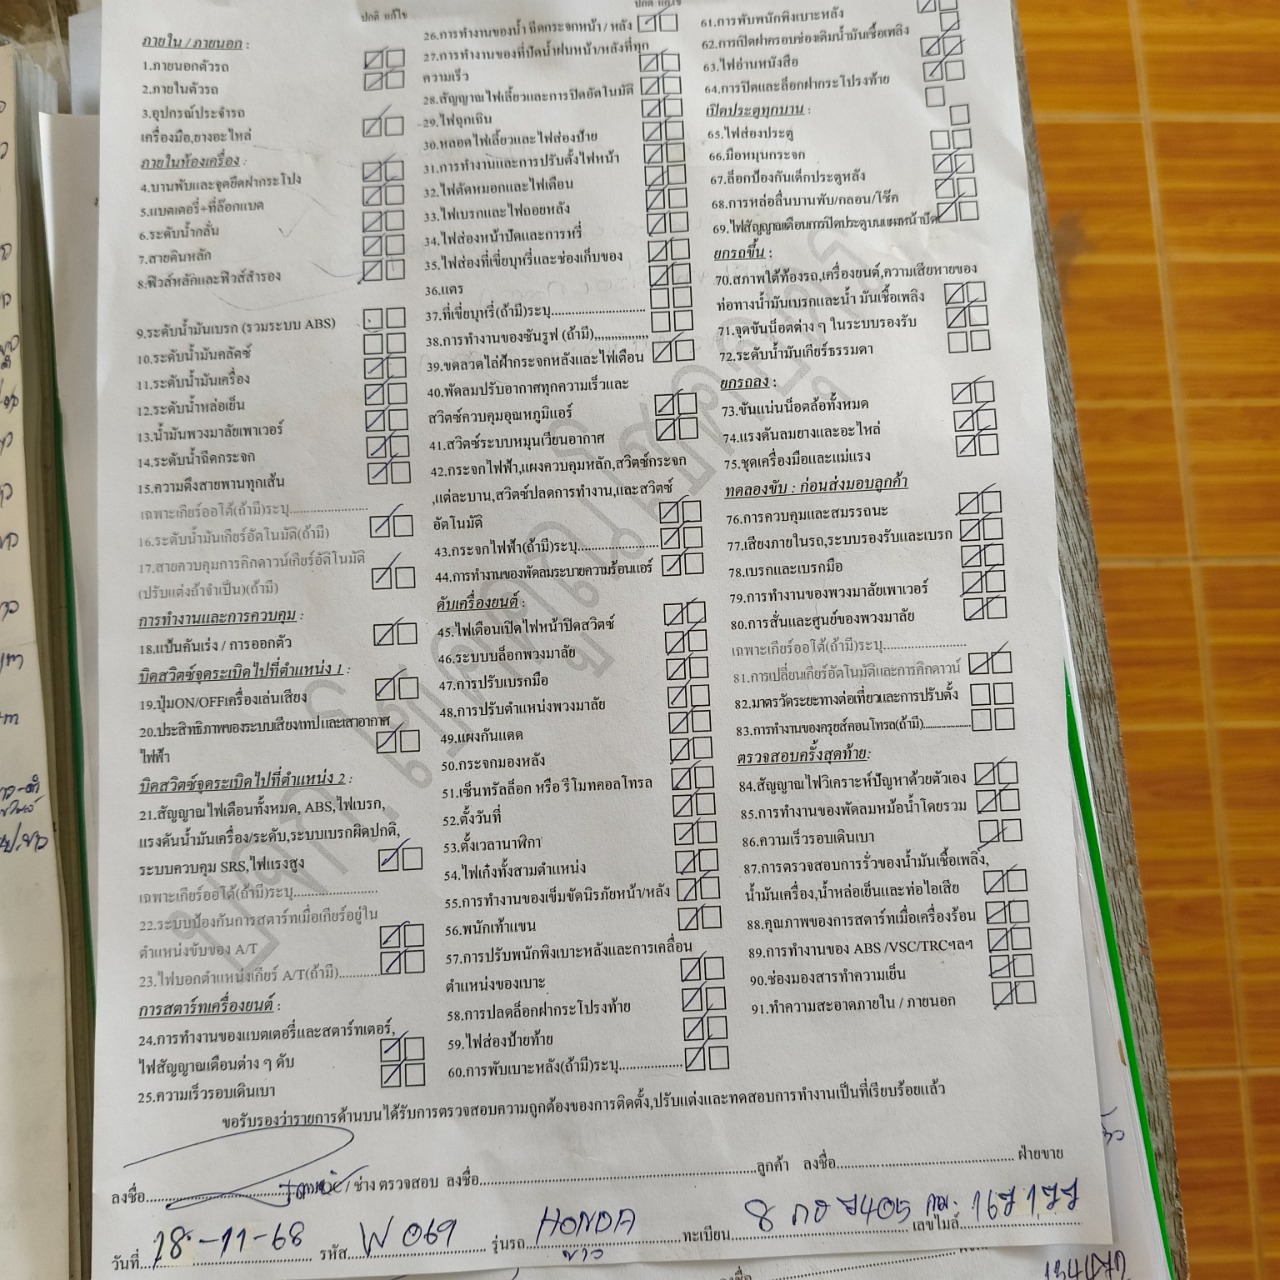 ปกติ แก้ไข
ภายใน / ภายนอก :
1.ภายนอกตัวรถ
2.ภายในตัวรถ
3.อุปกรณ์ประจำรถ
เครื่องมือ,ยางอะไหล่
ภายในห้องเครื่อง :
4.บานพับและจุดยึดฝากระโปง
5.แบตเตอรี่+ที่ล๊อกแบต
6.ระดับน้ำกลั่น
7.สายดินหลัก
8.ฟิวส์หลักและฟิวส์สำรอง
9.ระดับน้ำมันเบรก (รวมระบบ ABS)
10.ระดับน้ำมันคลัตซ์
11.ระดับน้ำมันเครื่อง
12.ระดับน้ำหล่อเย็น
13.น้ำมันพวงมาลัยเพาเวอร์
14.ระดับน้ำฉีดกระจก
15.ความตึงสายพานทุกเส้น
เฉพาะเกียร์ออโต้(ถ้ามี)ระบุ......................
16.ระดับน้ำมันเกียร์อัตโนมัติ(ถ้ามี)
17.สายควบคุมการคิกดาวน์เกียร์อัติโนมัติ
(ปรับแต่งถ้าจำเป็น)(ถ้ามี)
การทำงานและการควบคุม :
18.แป้นคันเร่ง / การออกตัว
บิดสวิตซ์จุดระเบิดไปที่ตำแหน่ง 1 :
19.ปุ่มON/OFFเครื่องเล่นเสียง
20.ประสิทธิภาพของระบบเสียง/เทป และเสาอากาศ
ไฟฟ้า
บิดสวิตซ์จุดระเบิดไปที่ตำแหน่ง 2 :
21.สัญญาณไฟเตือนทั้งหมด, ABS,ไฟเบรก,
แรงดันน้ำมันเครื่อง/ระดับ,ระบบเบรกผิดปกติ,
ระบบควบคุม SRS,ไฟแรงสูง
เฉพาะเกียร์ออโต้(ถ้ามี)ระบุ......................
22.ระบบป้องกันการสตาร์ทเมื่อเกียร์อยู่ใน
ตำแหน่งขับของ A/T
23.ไฟบอกตำแหน่งเกียร์ A/T(ถ้ามี)..........
การสตาร์ทเครื่องยนต์ :
24.การทำงานของแบตเตอรี่และสตาร์ทเตอร์,
ไฟสัญญาณเตือนต่าง ๆ ดับ
25.ความเร็วรอบเดินเบา
ปกติ แก้ไข
26.การทำงานของน้ำ ฉีดกระจกหน้า / หลัง
27.การทำงานของที่ปัดน้ำฝนหน้า/หลังที่ทุก
ความเร็ว
28.สัญญาณไฟเลี้ยวและการปิดอัตโนมัติ
29.ไฟฉุกเฉิน
30.หลอดไฟเลี้ยวและไฟส่องป้าย
31.การทำงานและการปรับตั้งไฟหน้า
32.ไฟตัดหมอกและไฟเตือน
33.ไฟเบรกและไฟถอยหลัง
34.ไฟส่องหน้าปัดและการหรี่
35.ไฟส่องที่เขี่ยบุหรี่และช่องเก็บของ
36.แตร
37.ที่เขี่ยบุหรี่(ถ้ามี)ระบุ..........................
38.การทำงานของซันรูฟ (ถ้ามี)...............
39.ขดลวดไล่ฝ้ากระจกหลังและไฟเตือน
40.พัดลมปรับอากาศทุกความเร็วและ
สวิตซ์ควบคุมอุณหภูมิแอร์
41.สวิตซ์ระบบหมุนเวียนอากาศ
42.กระจกไฟฟ้า,แผงควบคุมหลัก,สวิตซ์กระจก
,แต่ละบาน,สวิตซ์ปลดการทำงาน,และสวิตซ์
อัตโนมัติ
43.กระจกไฟฟ้า(ถ้ามี)ระบุ......................
44.การทำงานของพัดลมระบายความร้อนแอร์
ดับเครื่องยนต์ :
45.ไฟเตือนเปิดไฟหน้าปิดสวิตซ์
46.ระบบบล็อกพวงมาลัย
47.การปรับเบรกมือ
48.การปรับตำแหน่งพวงมาลัย
49.แผงกันแดด
50.กระจกมองหลัง
51.เซ็นทรัลล็อก หรือ รีโมทคอลโทรล
52.ตั้งวันที่
53.ตั้งเวลานาฬิกา
54.ไฟเก๋งทั้งสามตำแหน่ง
55.การทำงานของเข็มขัดนิรภัยหน้า/หลัง
56.พนักเท้าแขน
57.การปรับพนักพิงเบาะหลังและการเคลื่อน
ตำแหน่งของเบาะ
58.การปลดล็อกฝากระโปรงท้าย
59.ไฟส่องป้ายท้าย
60.การพับเบาะหลัง(ถ้ามี)ระบุ..................
61.การพับพนักพิงเบาะหลัง
62.การเปิดฝาครอบช่องเติมน้ำมันเชื้อเพลิง
63.ไฟอ่านหนังสือ
64.การปิดและล็อกฝากระโปรงท้าย
เปิดประตูทุกบาน :
65.ไฟส่องประตู
66.มือหมุนกระจก
67.ล็อกป้องกันเด็กประตูหลัง
68.การหล่อลื่นบานพับ/กลอน/โช๊ค
69.ไฟสัญญาณเตือนการปิดประตูบนแผงหน้าปัด
ยกรถขึ้น :
70.สภาพใต้ท้องรถ,เครื่องยนต์,ความเสียหายของ
ท่อทางน้ำมันเบรกและน้ำ มันเชื้อเพลิง
71.จุดขันน็อตต่าง ๆ ในระบบรองรับ
72.ระดับน้ำมันเกียร์ธรรมดา
ยกรถลง :
73.ขันแน่นน็อตล้อทั้งหมด
74.แรงดันลมยางและอะไหล่
75.ชุดเครื่องมือและแม่แรง
ทดลองขับ : ก่อนส่งมอบลูกค้า
76.การควบคุมและสมรรถนะ
77.เสียงภายในรถ,ระบบรองรับและเบรก
78.เบรกและเบรกมือ
79.การทำงานของพวงมาลัยเพาเวอร์
80.การสั่นและศูนย์ของพวงมาลัย
เฉพาะเกียร์ออโต้(ถ้ามี)ระบุ......................
81.การเปลี่ยนเกียร์อัตโนมัติและการคิกดาวน์
82.มาตรวัดระยะทางต่อเที่ยวและการปรับตั้ง
83.การทำงานของครุยส์คอนโทรล(ถ้ามี)..............
ตรวจสอบครั้งสุดท้าย:
84.สัญญาณไฟวิเคราะห์ปัญหาด้วยตัวเอง
85.การทำงานของพัดลมหม้อน้ำโดยรวม
86.ความเร็วรอบเดินเบา
87.การตรวจสอบการรั่วของน้ำมันเชื้อเพลิง,
น้ำมันเครื่อง,น้ำหล่อเย็นและท่อไอเสีย
88.คุณภาพของการสตาร์ทเมื่อเครื่องร้อน
89.การทำงานของ ABS /VSC/TRCฯลฯ
90.ช่องมองสารทำความเย็น
91.ทำความสะอาดภายใน / ภายนอก
ขอรับรองว่ารายการด้านบนได้รับการตรวจสอบความถูกต้องของการติดตั้ง,ปรับแต่งและทดสอบการทำงานเป็นที่เรียบร้อยแล้ว
ลงชื่อ.................... ช่าง ตรวจสอบ ลงชื่อ....................ลูกค้า ลงชื่อ.................... ฝ่ายขาย
วันที่ 28-11-68 รหัส W 069 รุ่นรถ HONDA ขาว ทะเบียน 8 กฮ 5405 กม. เลขไมล์ 167,177